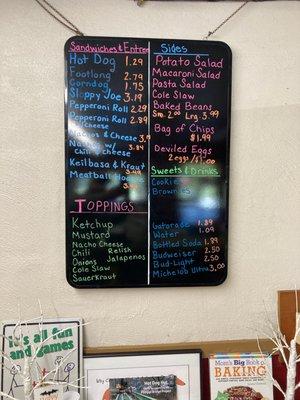 Sandwiches & Entree
Hot Dog 1.29
Footlong 2.79
Corndog 1.75
Sloppy Joe 3.19
Pepperoni Roll 2.29
Pepperoni Roll 2.89
w/Cheese
Nachos & Cheese
Nachos w/ 3.84
Chili & Cheese
Keilbasa & Kraut
3.49
Meatball
Toppings
Ketchup
Mustard
Nacho Cheese
Chili Relish
Onions Jalapenos
Cole Slaw
Sauerkraut
Sides
Potato Salad
Macaroni Salad
Pasta Salad
Cole Slaw
Baked Beans
Sm. 2.00 Lrg. 3.99
Bag of Chips
$1.99
Deviled Eggs
2 eggs/$1.00
Sweets & Drinks
Cookies
Brownies
Gatorade 1.89
Water 1.09
Bottled Soda 1.89
Budweiser 2.50
Bud-Light 2.50
Michelob Ultra 3.00
It's all fun
and games
WHY
Hot Dog
Mom's Big Book of
BAKING